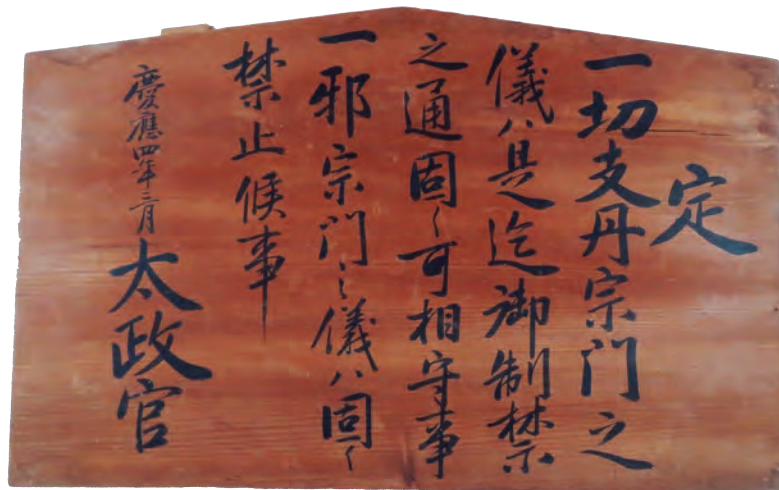 定
一切支丹宗門之
儀ハ是迄御制禁
之通固ク可相守事
一邪宗門之儀ハ固ク
禁止候事
慶應四年三月
太政官